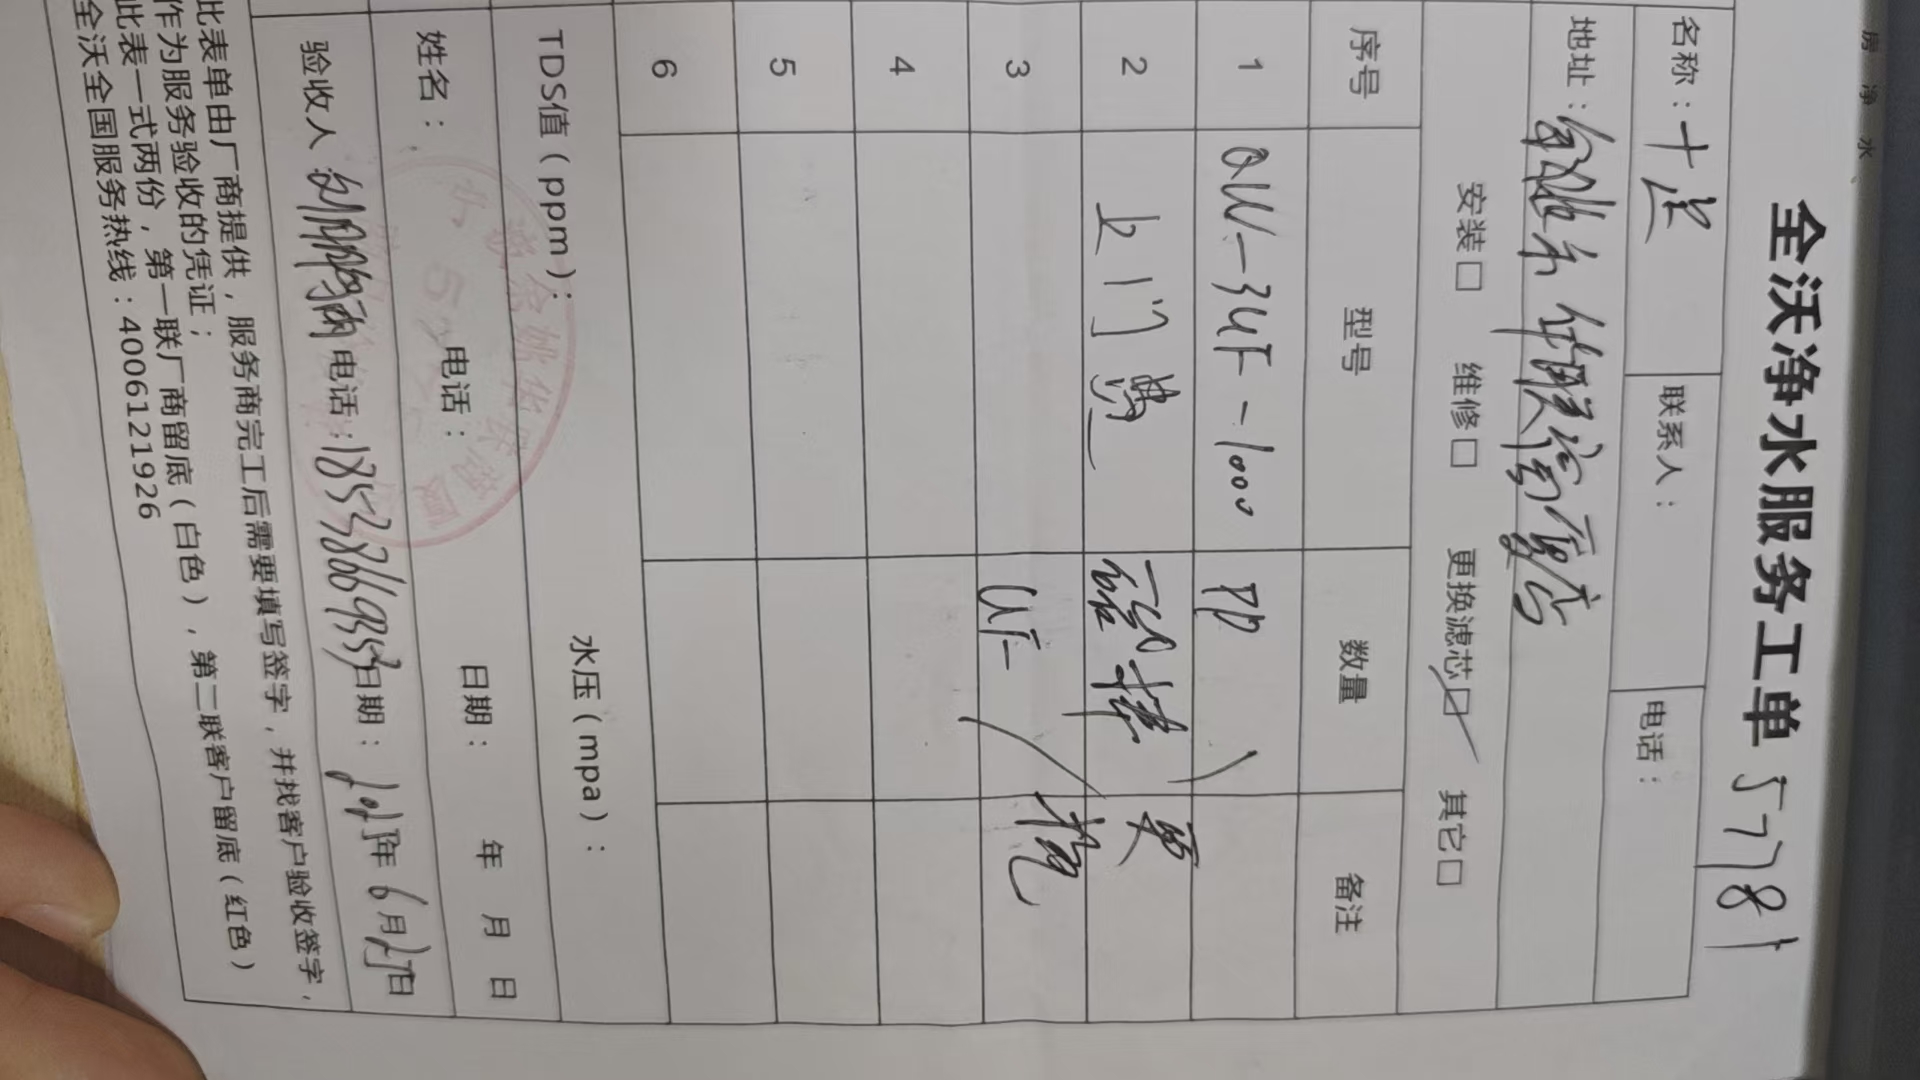 房 净 水
全沃净水服务工单 5781
名称：十足 联系人： 电话：
地址：余姚市 华联商厦店
安装□ 维修□ 更换滤芯□ 其它□
序号 型号 数量 备注
1 QW-3UF-1000 PP
2 上门费 活性炭 更
3 UF 换
4
5
6
TDS值（ppm）： 水压（mpa）：
姓名： 电话： 日期： 年 月 日
验收人 电话：18538669353 日期： 年6月2日
此表单由厂商提供，服务商完工后需要填写签字，并找客户验收签字，
作为服务验收的凭证；
此表一式两份，第一联厂商留底（白色），第二联客户留底（红色）
全沃全国服务热线：4006121926